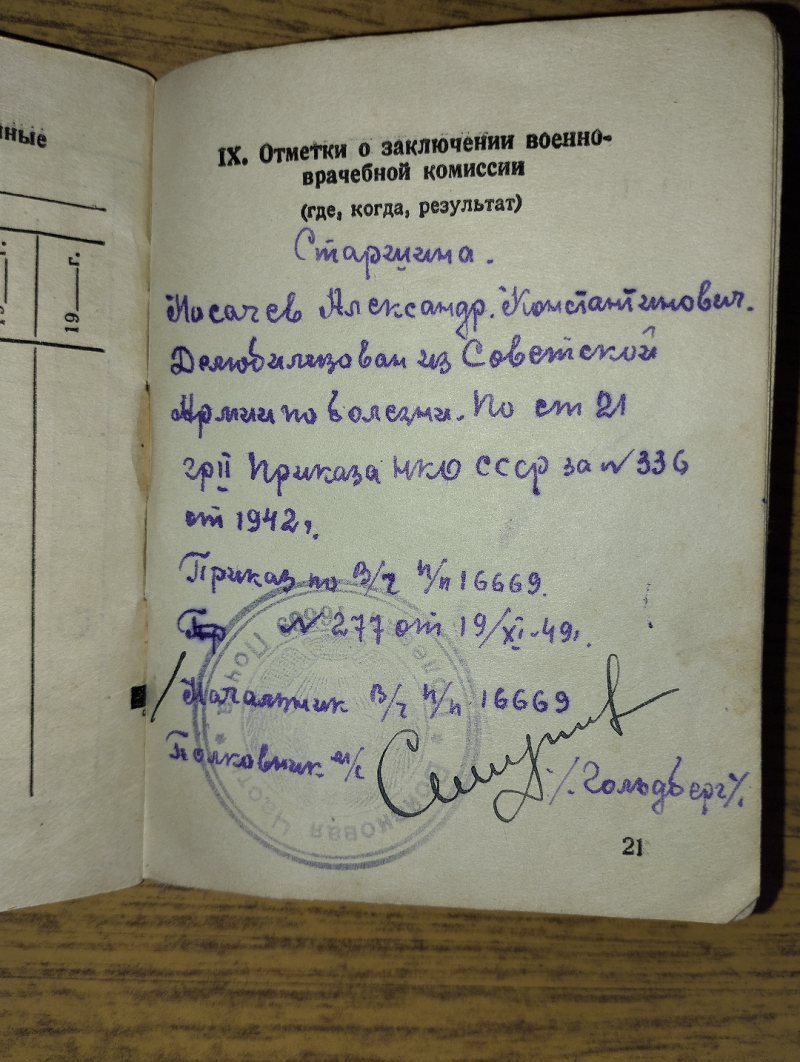 нные
19 г.
19 г.
IX. Отметки о заключении военно-
врачебной комиссии
(где, когда, результат)
Старшина.
Носачев Александр. Константинович.
Демобилизован из Советской
Армии по болезни. По ст 21
гр II Приказа НКО СССР за № 336
от 1942 г.
Приказ по В/ч п/п 16669.
Пр № 277 от 19/XI-49 г.
Начальник В/ч п/п 16669
Полковник м/с
/. Гольдберг /.
Войсковая Часть * Полевая Почта * 16669
21